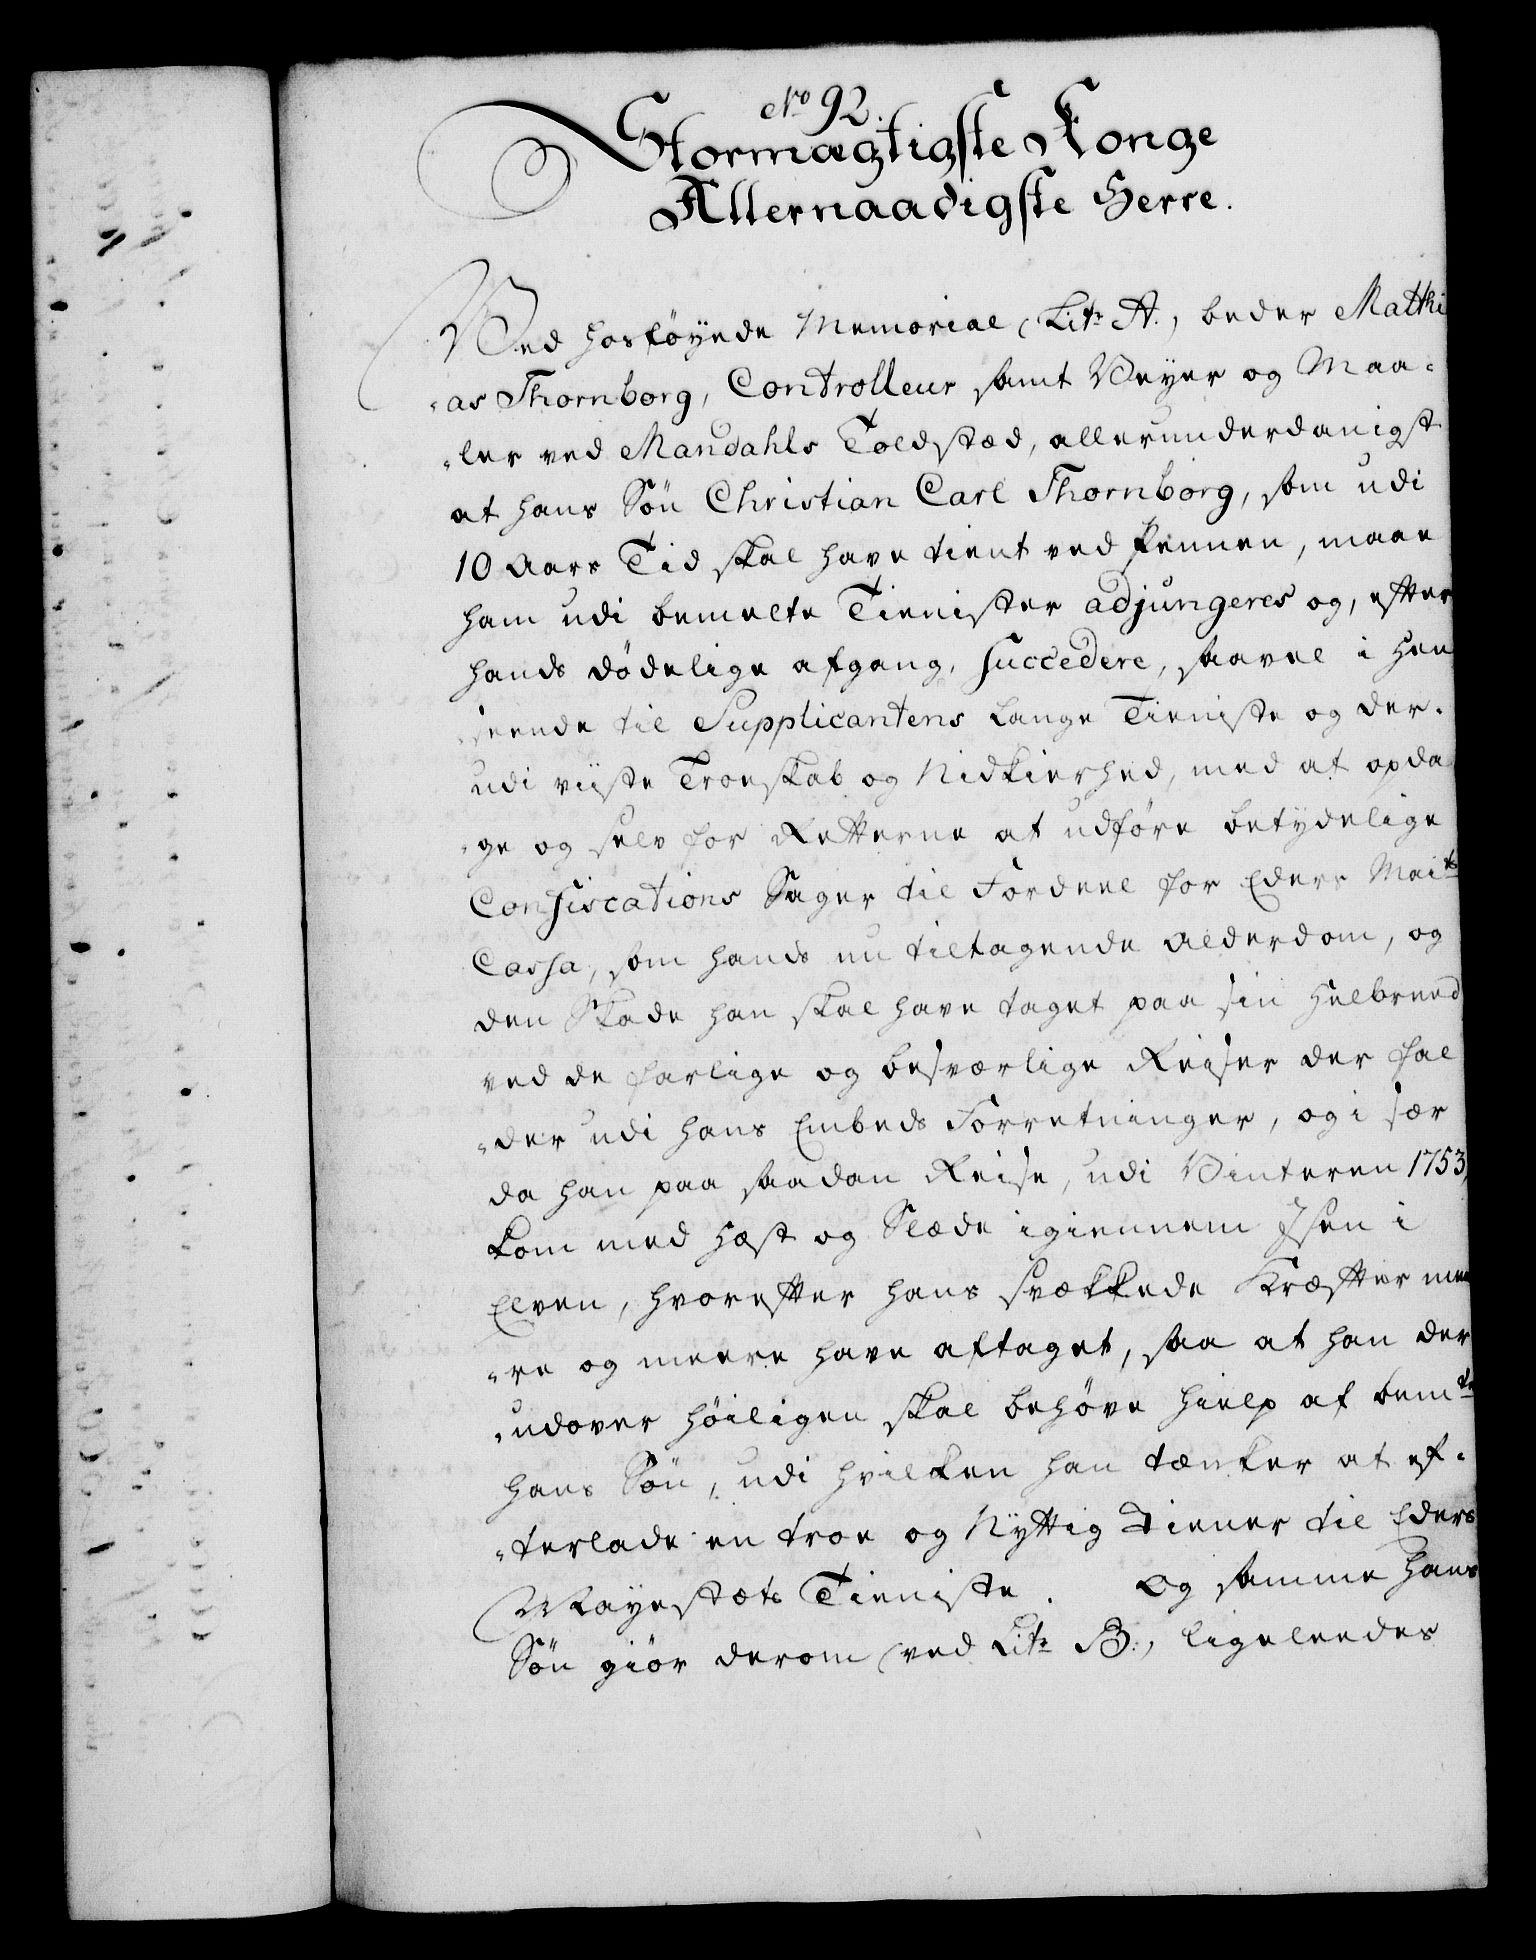 No 92.
Stormægtigste Konge
Allernaadigste Herre.
Ved hosföyede Memorial (Litr A., beder Mathi
„as Thornborg, Controlleur samt Veyer og Maa„
„ler ved Mandahls Toldstæd, allerunderdanigst
at hans Sön Christian Carl Thornborg, som udi
10 Aars Tid skal have tient ved Pennen, maae
ham udi bemelte Tienister adjungeres og, efter
hands dödelige afgang, succedere, saavel i Hen
„seende til Supplicantens lange Tieniste og der„
udi viiste Troeskab og Nidkierhed, med at opda
„ge og selv for Retterne at udföre betydelige
Confiscations Sager til Fordeel for Eders Maits
Cassa, som hands nu tiltagende Alderdom, og
den Skade han skal have taget paa sin Helbreed
ved de farlige og besværlige Reiser der fal
„der udi hans Embeds Forretninger, og i sær
da han paa saadan Reise, udi Vinteren 1753,
kom med Hæst og Slæde igiennem Jsen i
Elven, hvorefter hans svækkede Kræfter mee
„re og meere have aftaget, saa at han der
„udover höiligen skal behöve Hielp af bemte
hans Sön, udi hvilken han tænker at ef„
„terlade en troe og Nyttig Tiener til Eders
Mayestæts Tieniste. Og samme hans
Sön giör derom (ved Litr B., ligeleedes